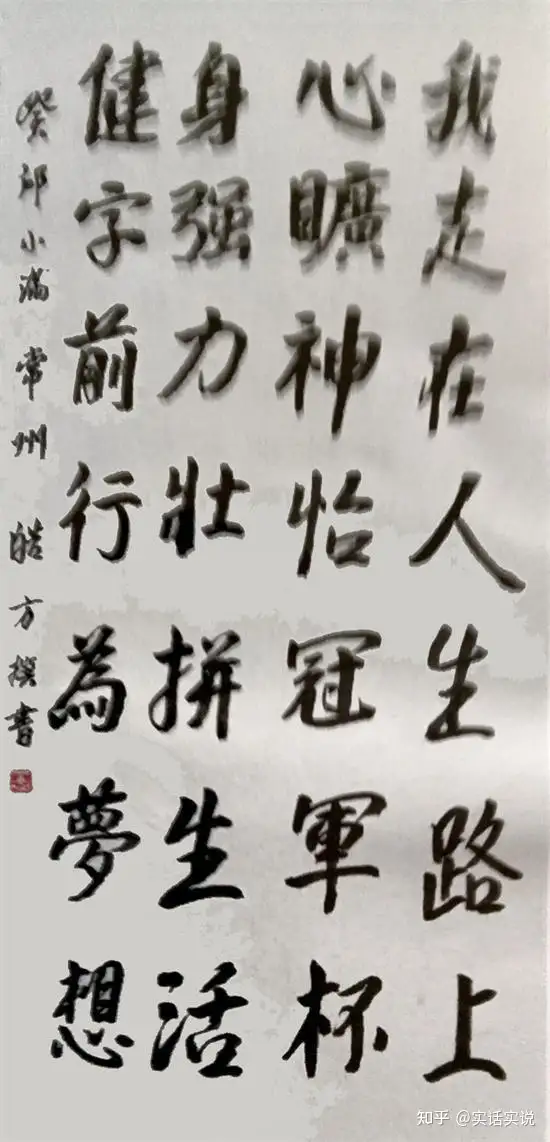 我走在人生路上
心曠神怡冠軍杯
身强力壯拼生活
健字前行為夢想
癸卯小滿 常州 皓方撰書
知乎 @实话实说